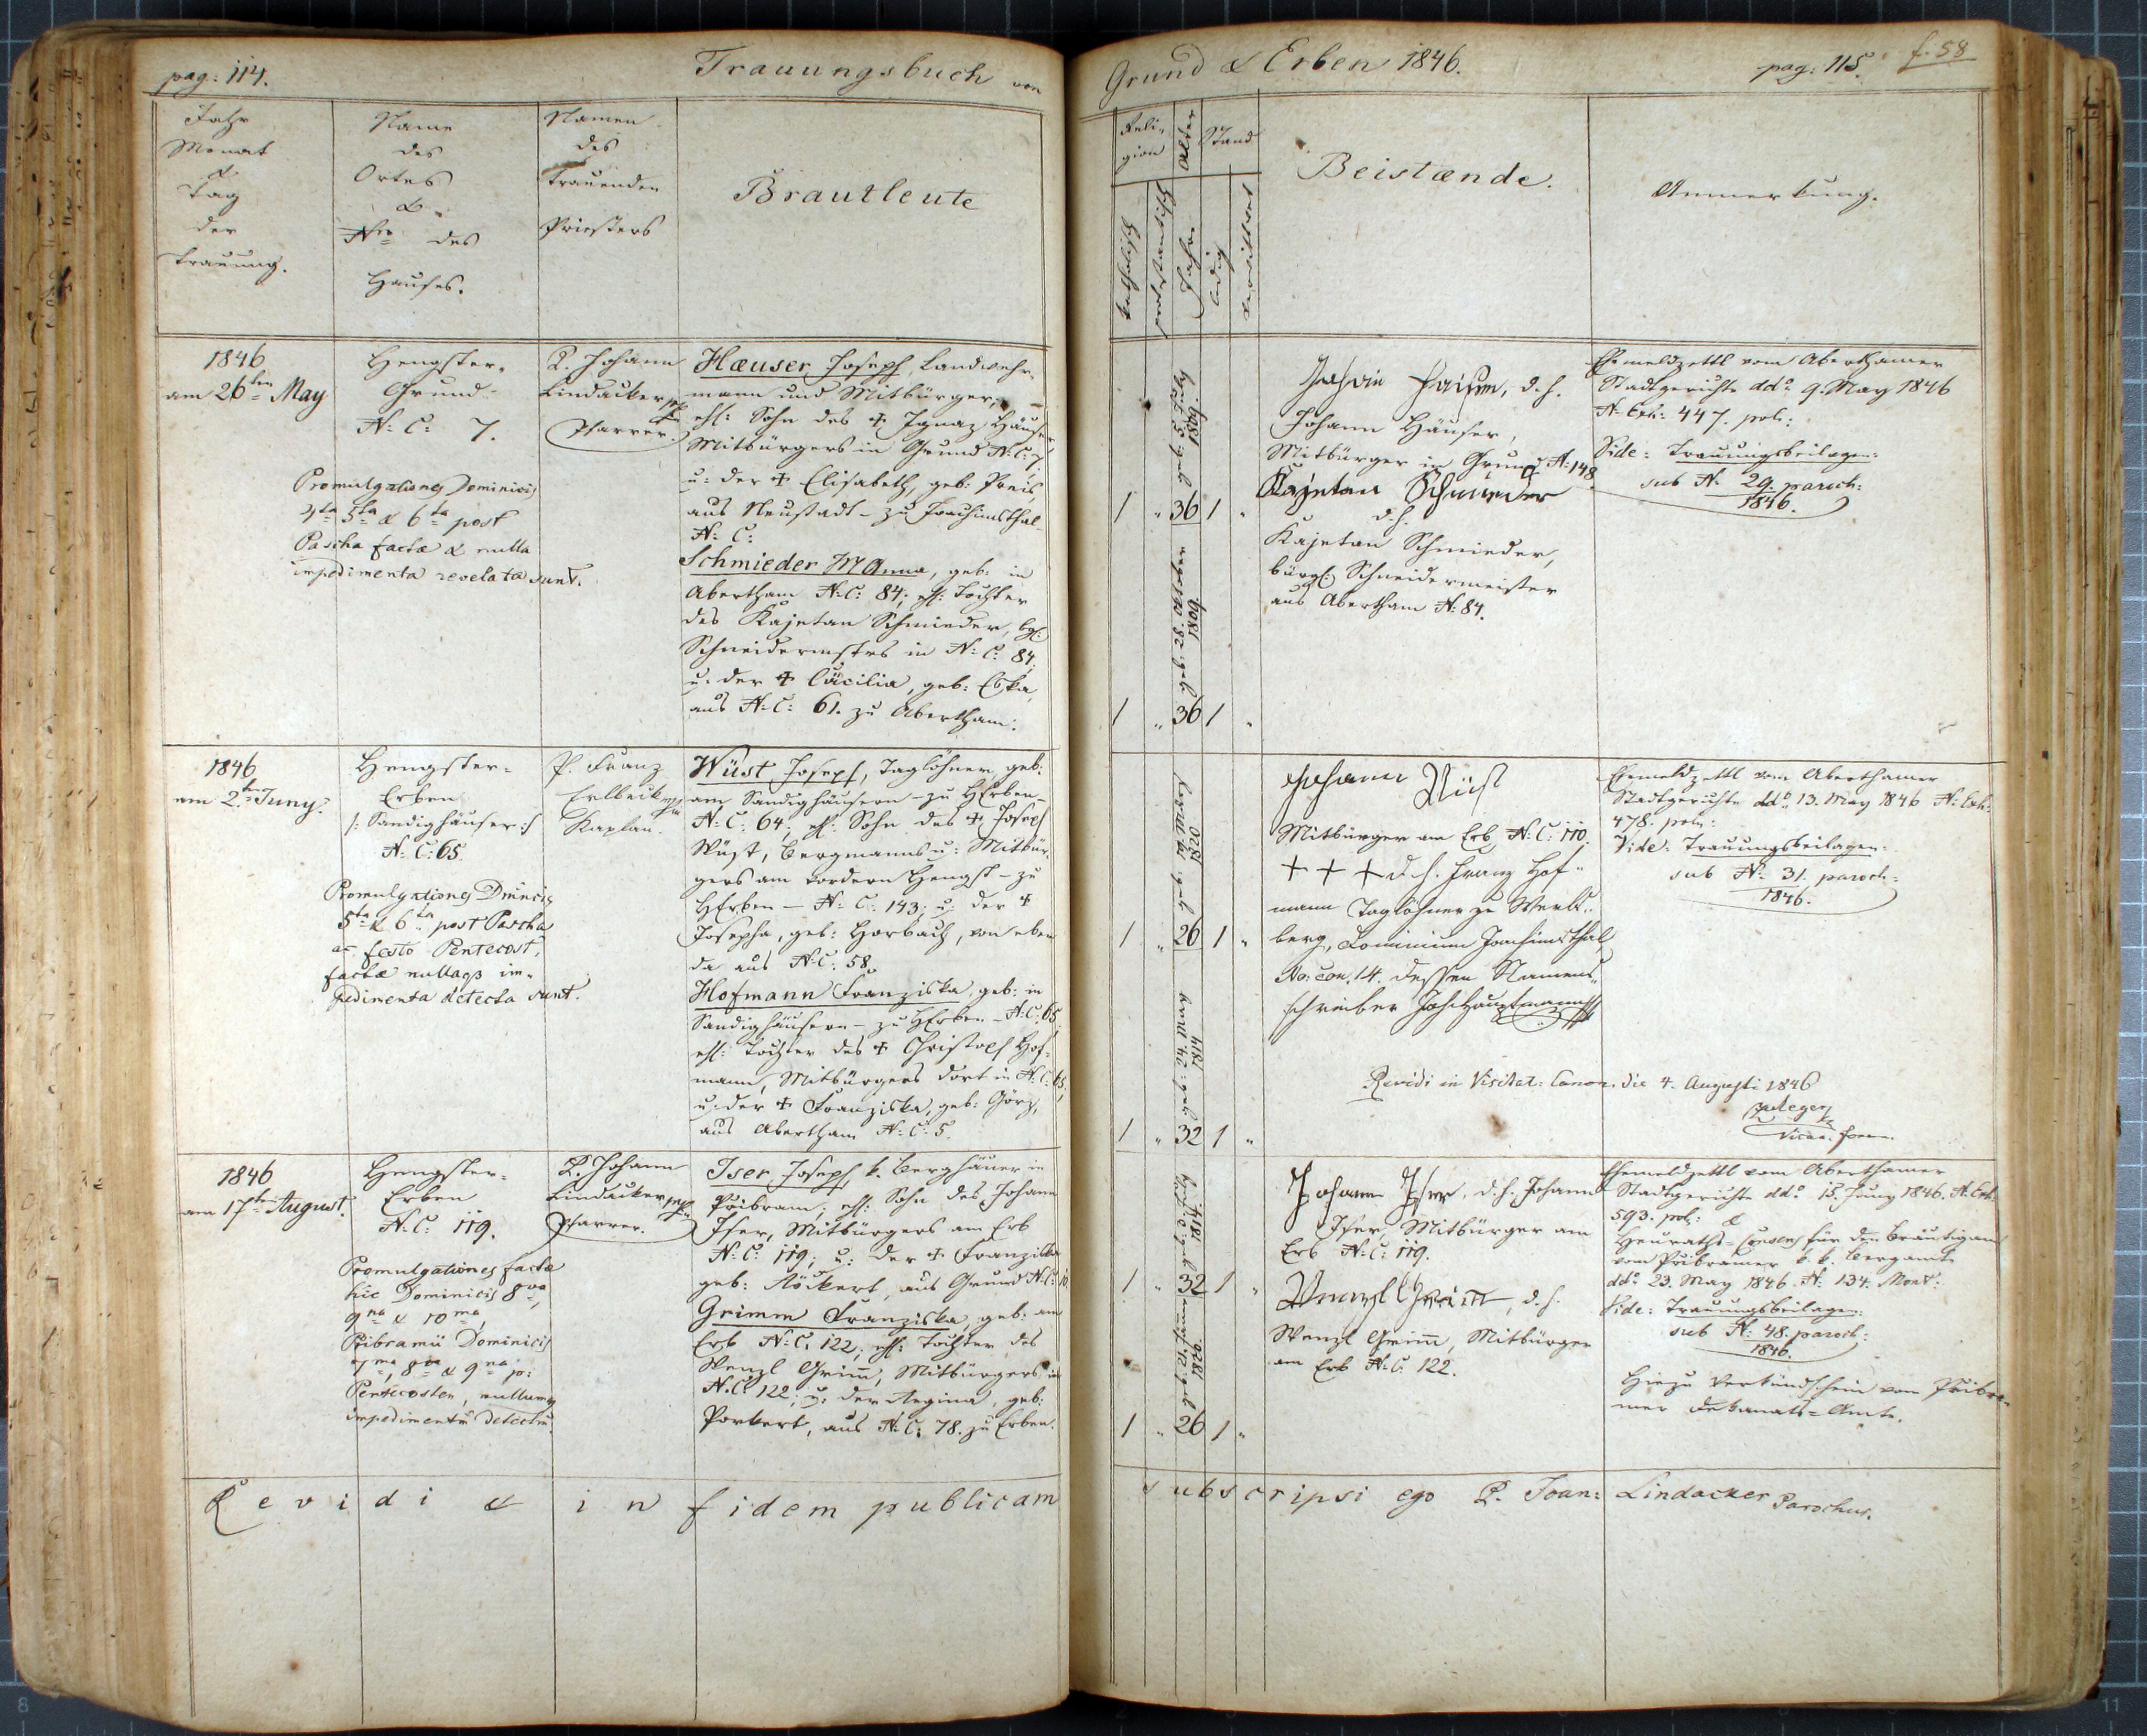 pag: 114.
Trauungsbuch von
Jahr
Monat
&
Tag
der
Trauung.
Name
des
Ortes
&
Nro des
Hauses.
Namen
des
trauenden
Priesters
Brautleute
1846
am 26ten May
Hengster-
Grund
N: C: 7.
Promulgationes Dominicis
4ta 5ta & 6ta post
Pascha factæ & nulla
impedimenta revelata sunt.
P. Johann
Lindacker
Pfarrer.
Hæuser Joseph, Landwehr-
mann und Mitbürger,
ehl: Sohn des + Ignaz Häuser,
Mitbürgers in Grund N: C: 7.
u: der + Elisabeth, geb: Preis
aus Neustadt - zu Joachimsthal
N: C:
Schmieder M Anna, geb: in
Abertham N: C: 84; ehl: Tochter
des Kajetan Schmieder, bgl:
Schneidermstrs in N: C: 84,
u: der + Cäcilia, geb:
aus N: C: 61. zu Abertham.
1846
am 2ten Juny.
Hengster-
Erben
/: Sandighäuser :/
N: C: 65.
Promulgationes Dnincis
5ta & 6ta post Pascha
ac festo Pentecost,
factæ nullaqs im-
pedimenta detecta sunt.
P. Franz
Erlbeck
Kaplan.
Wüst Joseph, Taglöhner, geb:
am Sandighäusern - zu HErben -
N: C: 64; ehl: Sohn des + Joseph
Wüst, Bergmanns u: Mitbür-
gers am vordern Hengst - zu
HErben - N: C: 143; u: der +
Josepha, geb: Horbach, von eben
da aus N: C: 58.
Hofmann Franziska, geb: in
Sandighäusern - zu HErben - N: C: 65
ehl: Tochter des + Christoph Hof-
mann, Mitbürgers dort in N: C: 65,
u: der + Franziska, geb: Görz,
aus Abertham N: C: 5.
1846
am 17ten August.
Hengster-
Erben
N: C: 119.
Promulgationes factæ
hic Dominicis 8va,
9na & 10ma,
Pibramii Dominicis
7ma, 8va & 9na p:
Pentecosten, nullumq
impedimentū detectū.
P. Johann
Lindacker
Pfarrer.
Iser Joseph, k. Berghäuer in
Pribram, ehl: Sohn des Johann
Iser, Mitbürgers am Erb
N: C: 119; u: der + Franziska
geb: Röckert, aus Grund N: C: 10
Grimm Franziska, geb: am
Erb N: C. 122, ehl: Tochter des
Wenzl Grim̄, Mitbürgers in
N: C: 122; u: der Regina, geb:
Porkert, aus N: C: 78. zu Erben.
Revidi & in fidem publicam
Grund & Erben 1846.
pag: 115.
f. 58
Reli-
gion
Alter
Stand
katholisch
protestantisch
Jahre
ledig
verwittwet
Beistænde.
Anmerkung.
geb: 5. July
1809.
1 " 36 1 "
geb: 28. October
1809
1 " 36 1 "
Häuser, d. h.
Johann Häuser,
Mitbürger in Grund N: 148
Kajetan Schmieder
d. h.
Kajetan Schmieder,
bürgl: Schneidermeister
aus Abertham N: 84.
Ehemeldzettl vom Aberthamer
Stadtgerichte ddo 9. May 1846
N: Exh: 447. pol:
Vide: Trauungsbeilagen:
sub N: 29. paroch:
1846.
geb: 19. März
1820
1 " 26 1 "
geb: 24. May
1814
1 " 32 1 "
Johann Wüst
Mitbürger am Erb N: C: 110.
+ + + d. h. Franz Hof-
mann Taglöhner zu Werls-
berg, Dominium Joachimsthal,
No: con. 14. dessen Namens-
schreiber Joh Hauptmann
Ehemeldzettl vom Aberthamer
Stadtgerichte ddo 13. May 1846 N: Exh:
478. pol:
Vide: Trauungsbeilagen:
sub N: 31. paroch:
1846.
Revidi in Visitat: Canon. die 4. Augusti 1846
Vicar. foran.
geb: 3. July
1814.
1 " 32 1 "
geb: 21. Jänner
1820.
1 " 26 1 "
Johann Iser, d. h. Johann
Iser, Mitbürger am
Erb N: C: 119.
Wenzl Grim̄, d. h.
Wenzl Grim̄, Mitbürger
am Erb N: C: 122.
Ehemeldzettl vom Aberthamer
Stadtgerichte ddo 15. Juny 1846. N: Exh.
593. pol: &
Heuraths-Consens für den Bräutigam
vom Pibramer k. k. Bergamte
ddo 23. May 1846. N: 134. Mont:
Vide: Trauungsbeilagen:
sub N: 48. paroch:
1846.
Hiezu Verkündschein vom Pibra-
mer Dekanats-Amte.
subscripsi ego P. Joan: Lindacker Parochus.